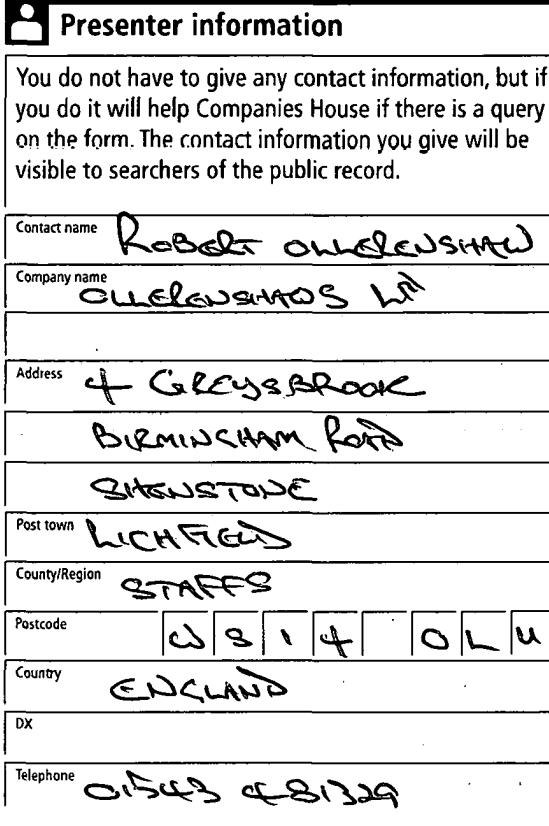 Presenter information
You do not have to give any contact information, but if
you do it will help Companies House if there is a query
on the form. The contact information you give will be
visible to searchers of the public record.
Contact name ROBERT OLLERENSHAW
Company name OLLERENSHAWS LTD
Address 4 GREYSBROOK
BIRMINGHAM ROAD
SHENSTONE
Post town LICHFIELD
County/Region STAFFS
Postcode WS14 0LU
Country ENGLAND
DX
Telephone 01543 481329